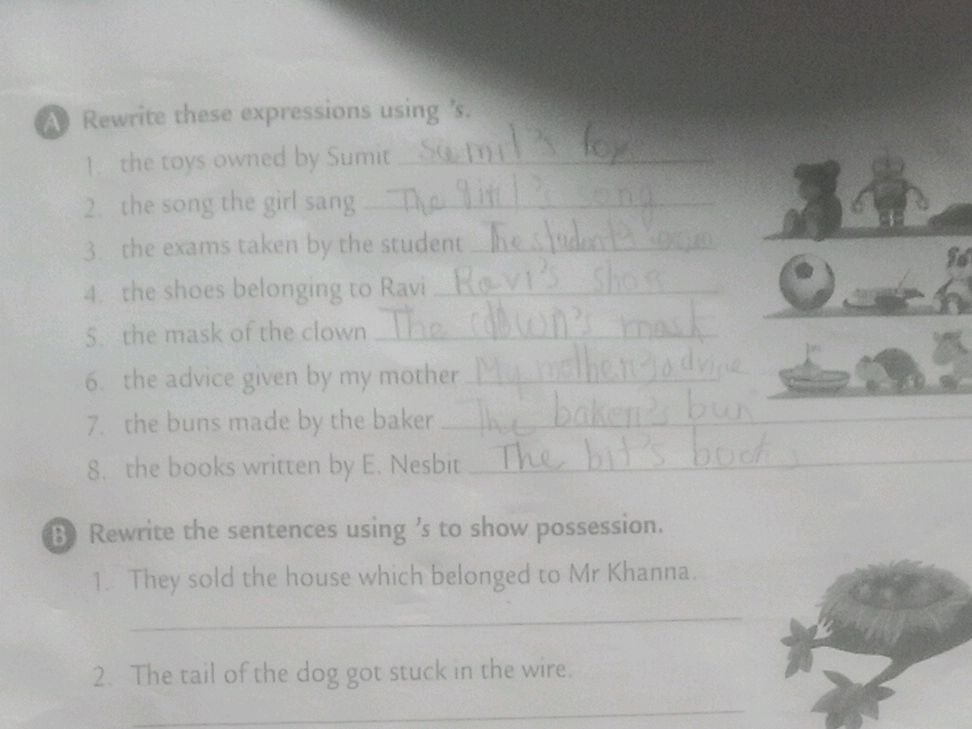 A Rewrite these expressions using 's.
1. the toys owned by Sumit Sumit's toy
2. the song the girl sang The girl's song
3. the exams taken by the student The student's
4. the shoes belonging to Ravi Ravi's
5. the mask of the clown The clown's mask
6. the advice given by my mother My mother's advice
7. the buns made by the baker The baker's bun
8. the books written by E. Nesbit The bit's book
B Rewrite the sentences using 's to show possession.
1. They sold the house which belonged to Mr Khanna.
2. The tail of the dog got stuck in the wire.